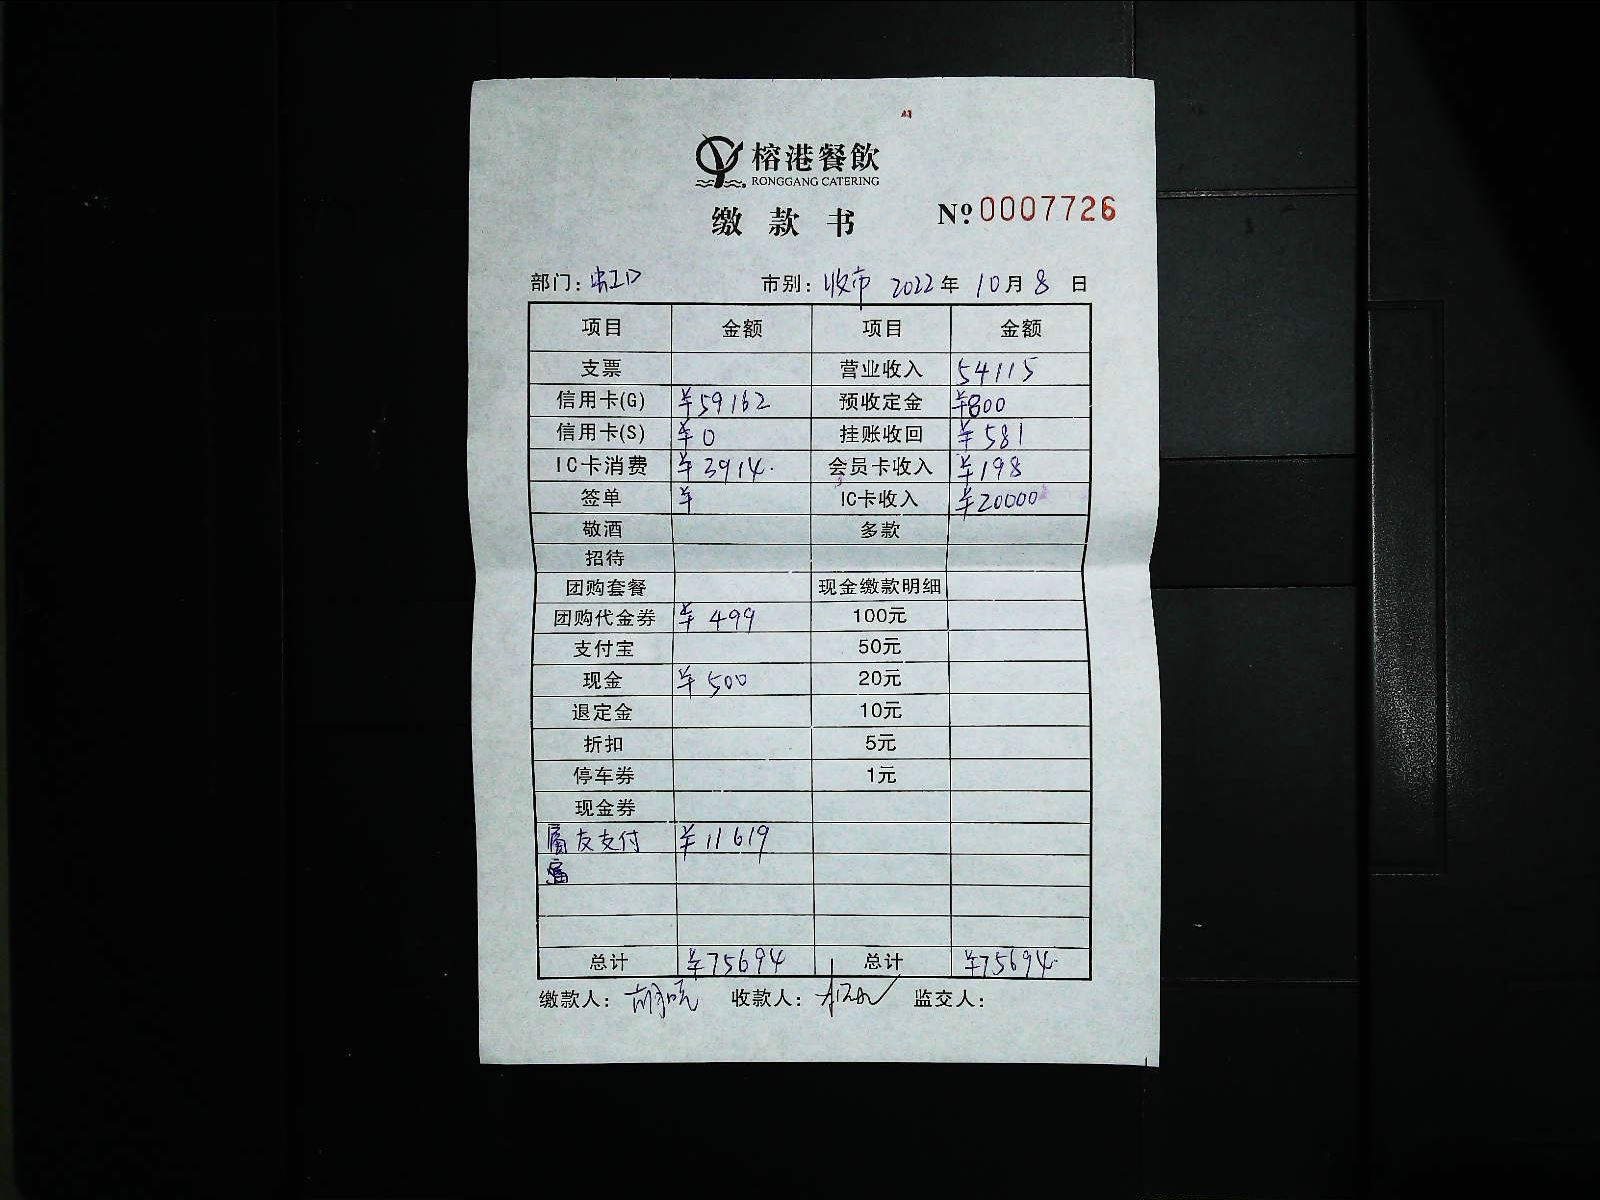 榕港餐飲
RONGGANG CATERING
缴款书 № 0007726
部门: 市别: 收市 2022年 10月 8日
项目 金额 项目 金额
支票 营业收入 54115
信用卡(G) ¥59162 预收定金 ¥800
信用卡(S) ¥0 挂账收回 ¥581
IC卡消费 ¥3914. 会员卡收入 ¥198
签单 ¥ IC卡收入 ¥20000
敬酒 多款
招待
团购套餐 现金缴款明细
团购代金券 ¥499 100元
支付宝 50元
现金 ¥500 20元
退定金 10元
折扣 5元
停车券 1元
现金券
友支付 ¥11619
总计 ¥75694 总计 ¥75694.
缴款人: 收款人: 监交人: